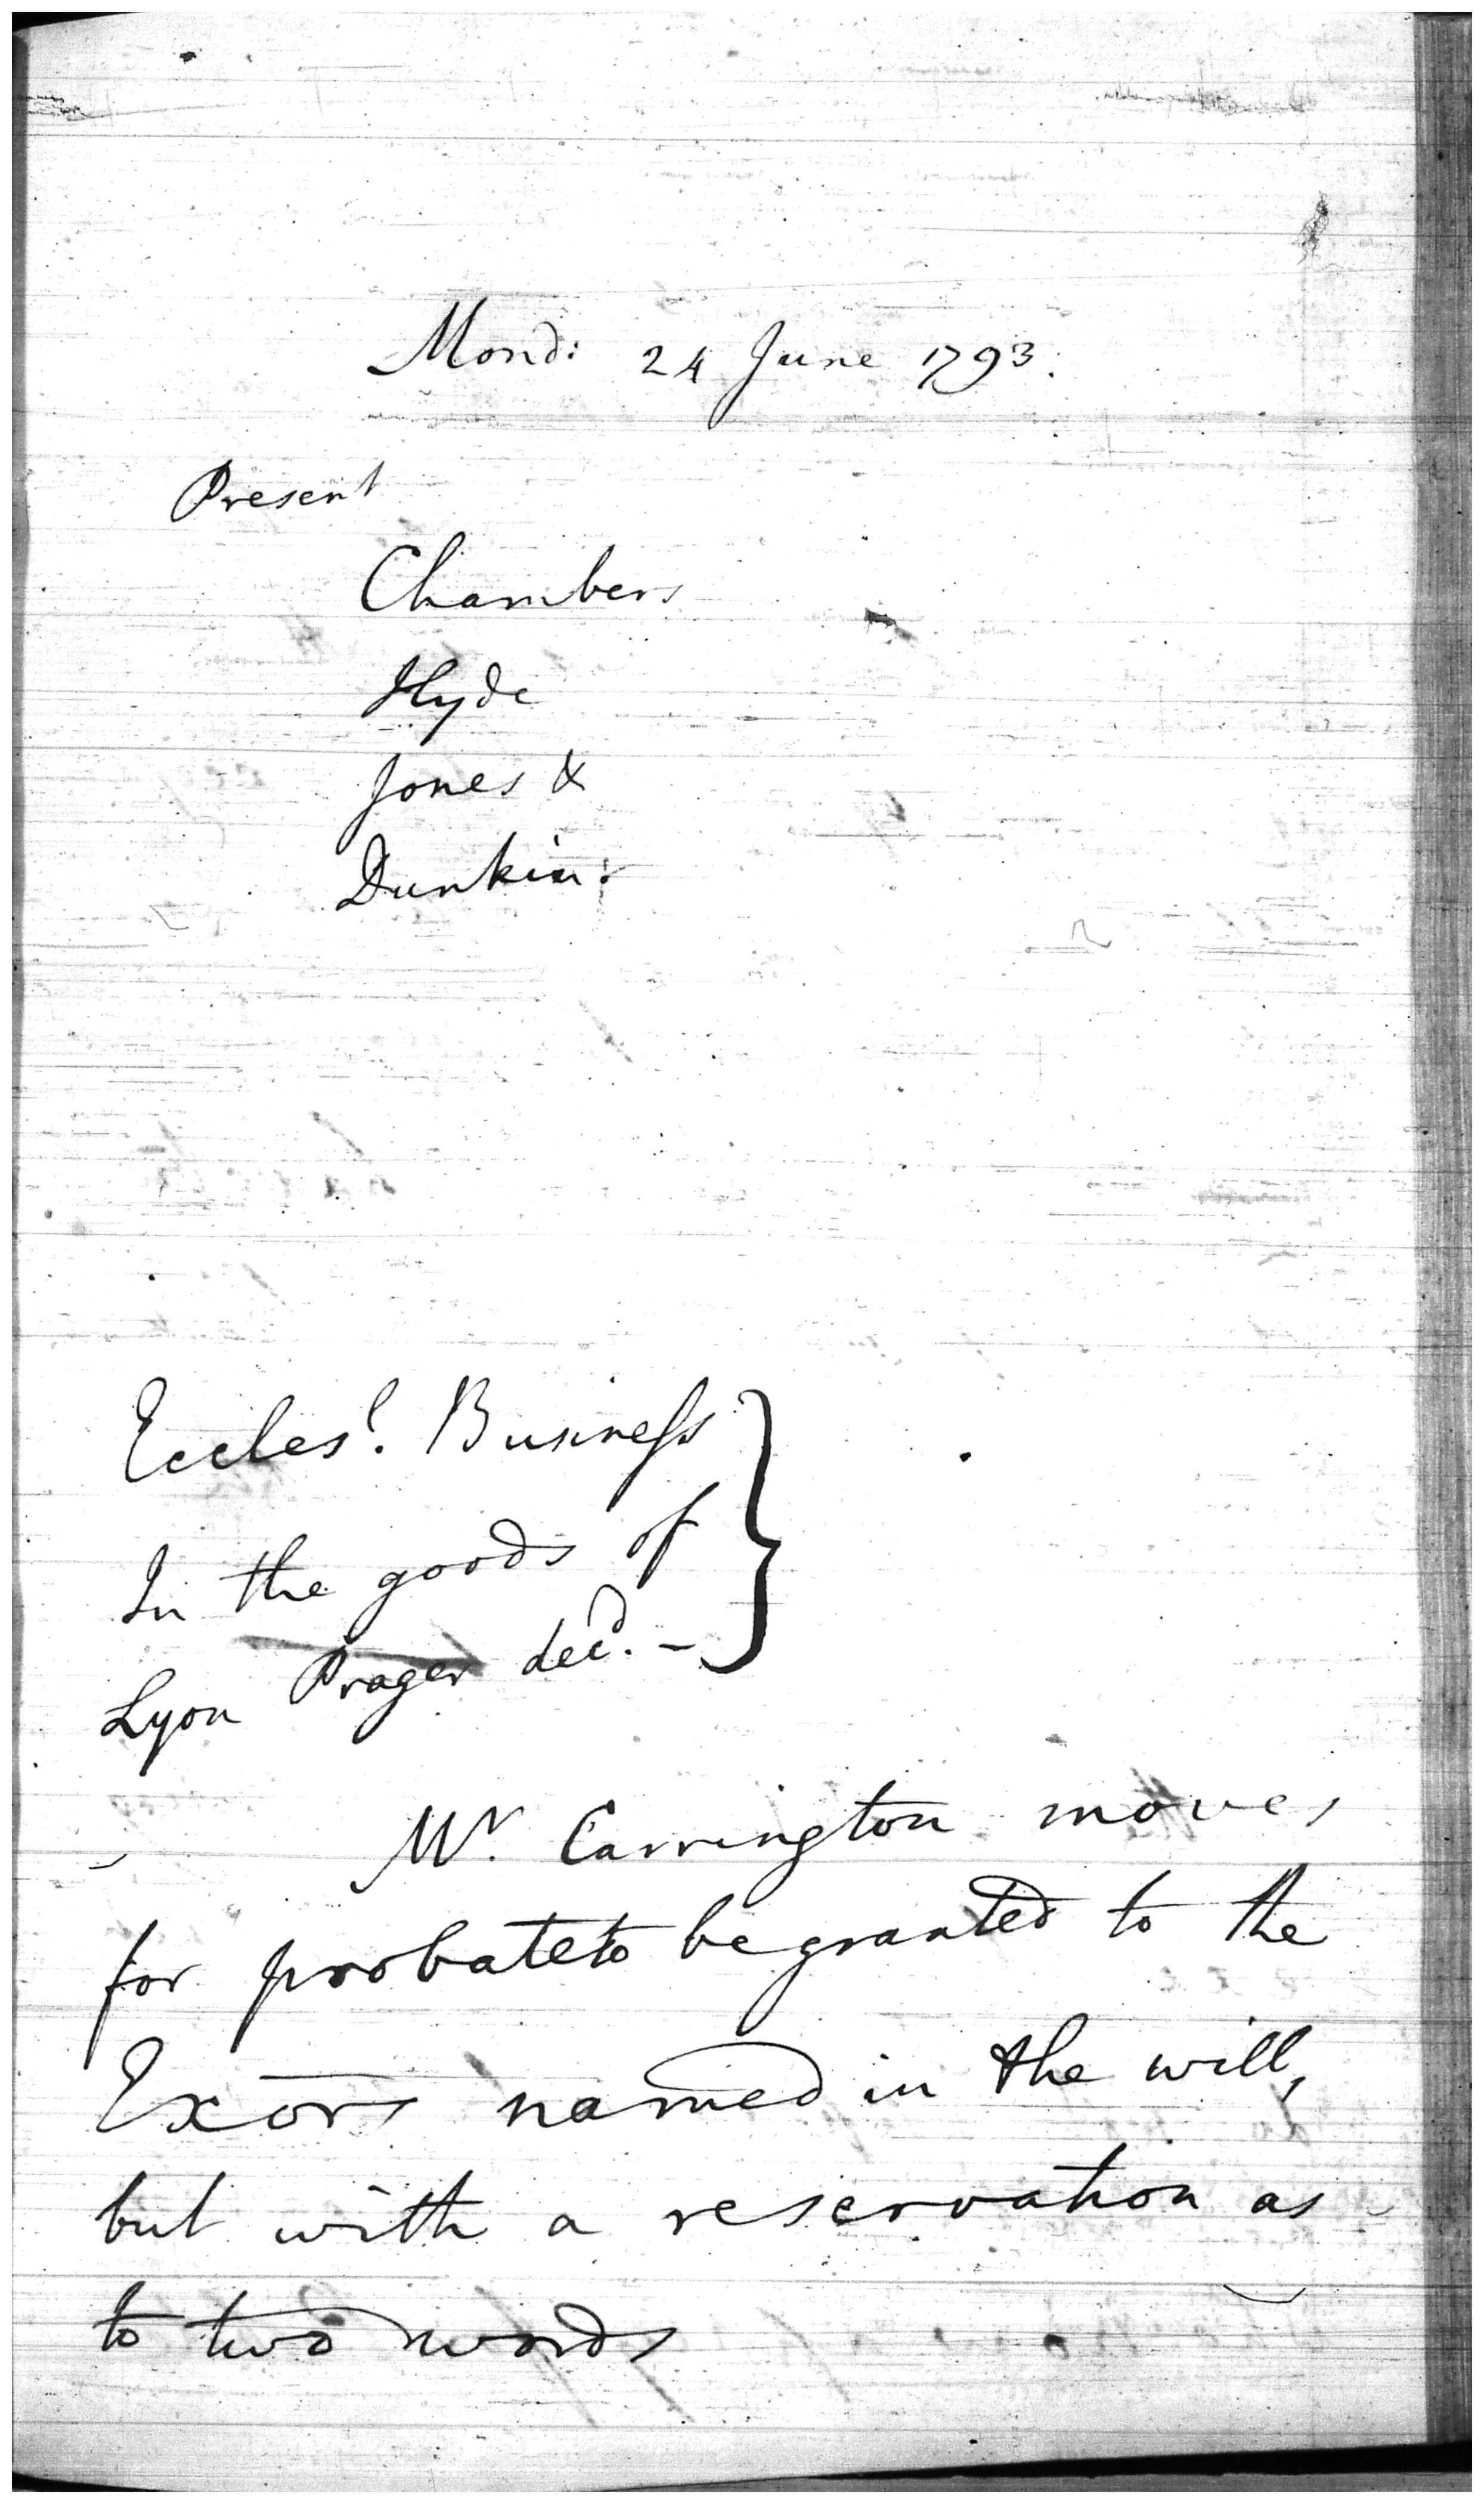 Mond: 24 June 1793.
Present
Chambers
Hyde
Jones &
Dunkin:
Eccles.l Business
In the goods of
Lyon Prager dec.d –
Mr. Carrington moves
for probate to be granted to the
Exors named in the will,
but with a reservation as
to two words